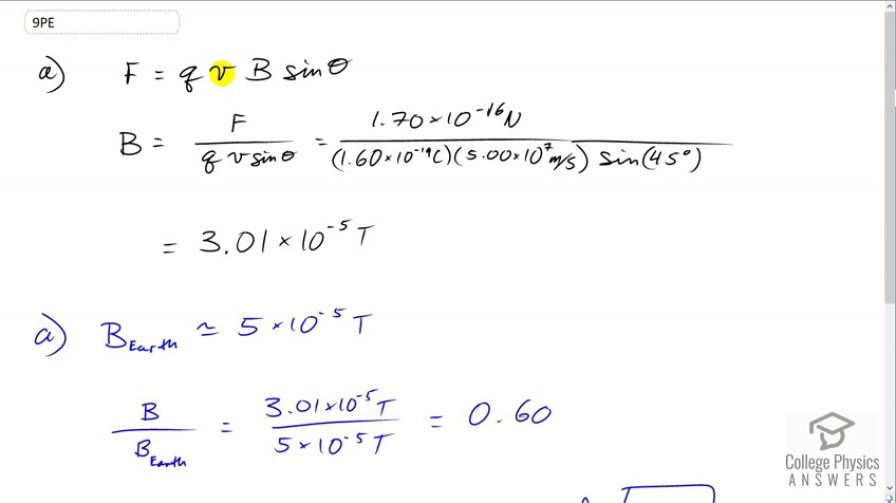 9PE
a) F = q v B sinθ
B = F / (q v sinθ) = 1.70×10⁻¹⁶ N / ((1.60×10⁻¹⁹C)(5.00×10⁷ m/s) sin(45°))
= 3.01×10⁻⁵ T
a) B_Earth ≃ 5×10⁻⁵ T
B / B_Earth = 3.01×10⁻⁵T / 5×10⁻⁵T = 0.60
College Physics
ANSWERS